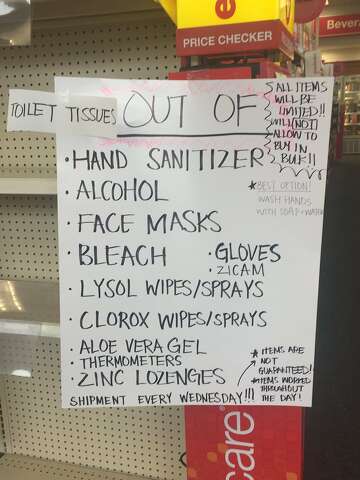 Bever
PRICE CHECKER
TOILET TISSUES
OUT OF
ALL ITEMS
WILL BE
LIMITED!!
WILL NOT
ALLOW TO
BUY IN
BULK!!
• HAND SANITIZER
★ BEST OPTION!
WASH HANDS
WITH SOAP + WATER
• ALCOHOL
• FACE MASKS
• BLEACH
• GLOVES
• ZICAM
• LYSOL WIPES/SPRAYS
• CLOROX WIPES/SPRAYS
• ALOE VERA GEL
• THERMOMETERS
• ZINC LOZENGES
★ ITEMS ARE
NOT
GUARANTEED!
★ ITEMS WORKED
THROUGHOUT
THE DAY!
SHIPMENT EVERY WEDNESDAY!!!
care